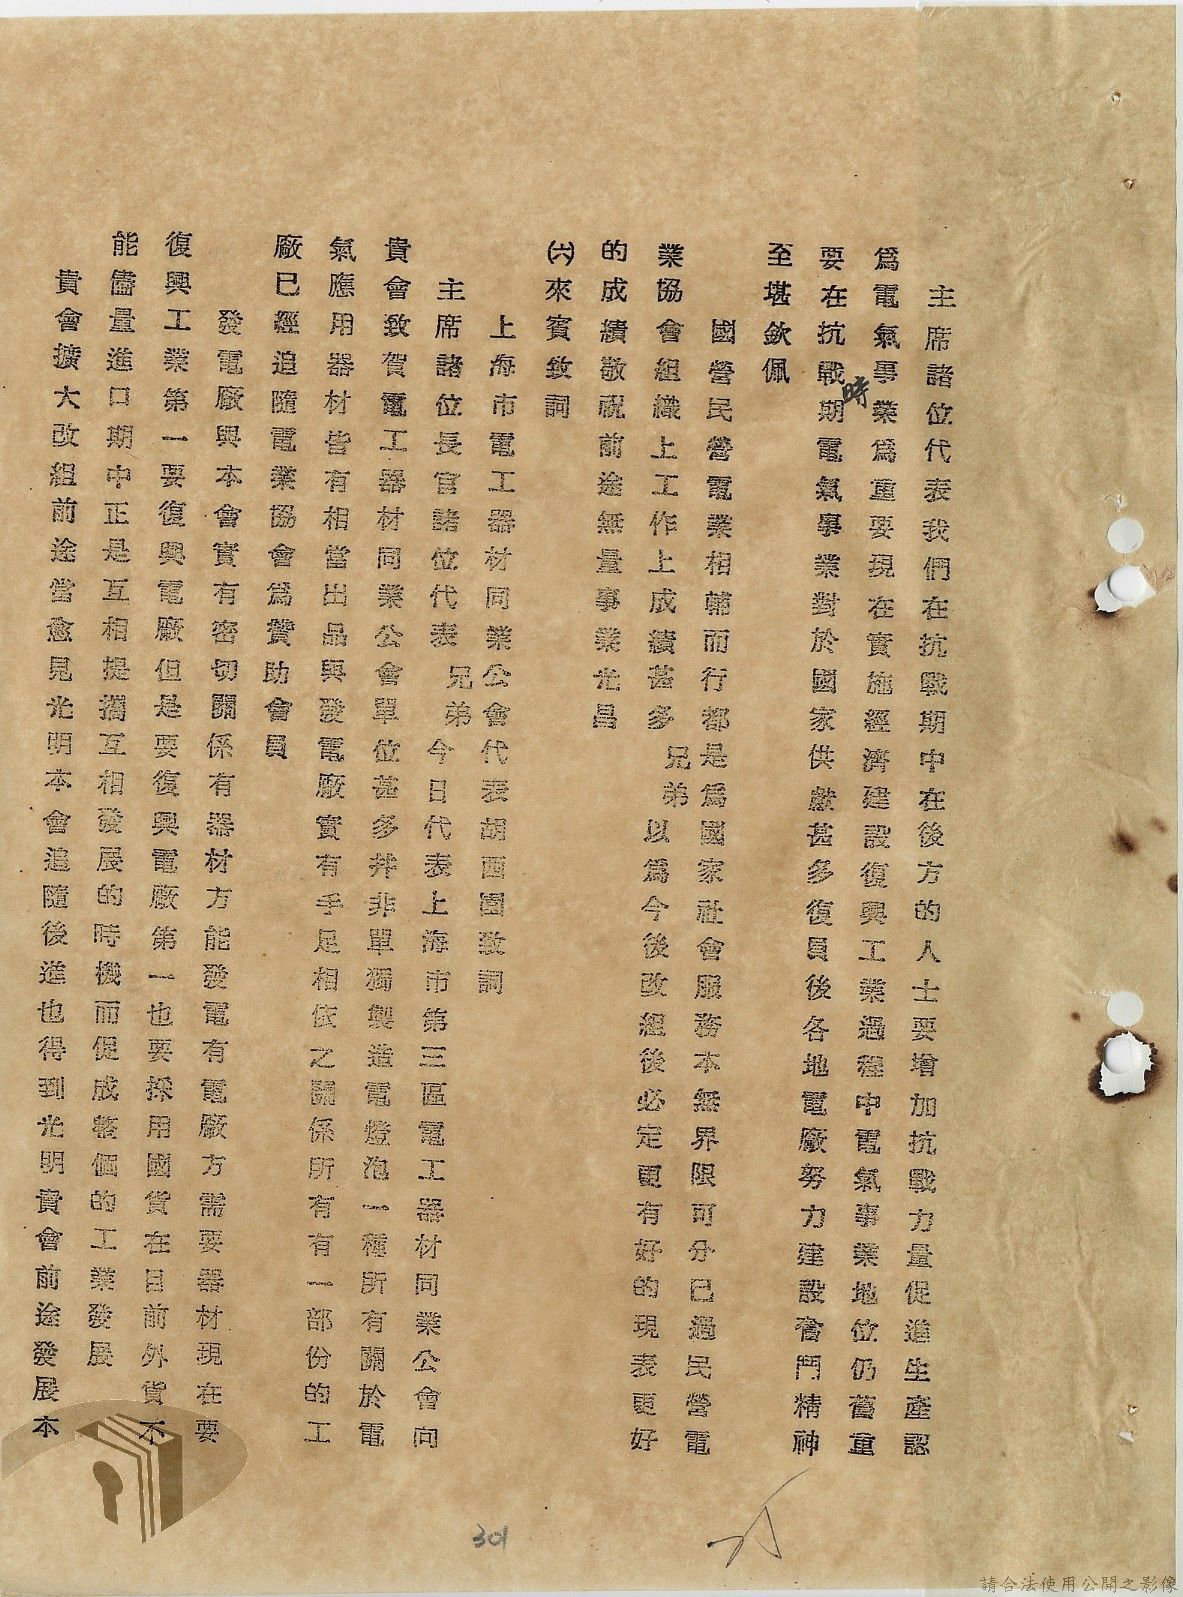 主席諸位代表我們在抗戰期中在後方的人士要增加抗戰力量促進生產認
為電氣事業為重要現在實施經濟建設復興工業過程中電氣事業地位仍舊重
要在抗戰時期電氣事業對於國家供獻甚多復員後各地電廠努力建設奮鬥精神
至堪欽佩
國營民營電業相輔而行都是為國家社會服務本無界限可分已過民營電
業協會組織上工作上成績甚多兄弟以為今後改組後必定更有好的現表更好
的成績敬祝前途無量事業光昌
㈥來賓致詞
上海市電工器材同業公會代表胡西園致詞
主席諸位長官諸位代表兄弟今日代表上海市第三區電工器材同業公會向
貴會致賀電工器材同業公會單位甚多并非單獨製造電燈泡一種所有關於電
氣應用器材皆有相當出品與發電廠實有手足相依之關係所有有一部份的工
廠已經追隨電業協會為贊助會員
發電廠與本會實有密切關係有器材方能發電有電廠方需要器材現在要
復興工業第一要復興電廠但是要復興電廠第一也要採用國貨在目前外貨不
能儘量進口期中正是互相提攜互相發展的時機而促成整個的工業發展
貴會擴大改組前途當愈見光明本會追隨後進也得到光明貴會前途發展本
301
請合法使用公開之影像